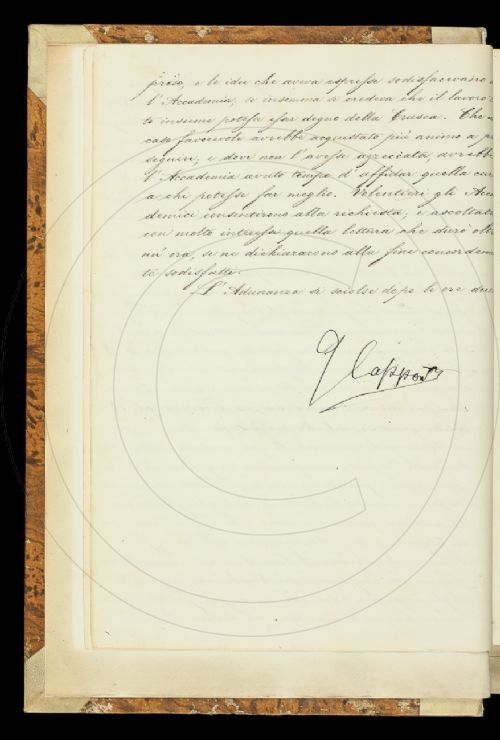 prio, e le idee che aveva espresse sodisfacevano
l'Accademia, se insomma si credeva che il lavoro
te insieme potesse esser degno della Crusca. Che
caso favorevole avrebbe acquistato più animo a p
seguire; e dove non l'avesse apprezzata, avrebbe
l'Accademia avuto tempo d'affidar quella cur
a chi potesse far meglio. Volentieri gli Acca
demici consentirono alla richiesta, e ascoltata
con molto interesse quella lettura che durò olt
un'ora, se ne dichiararono alla fine concordem
te sodisfatti.
L'Adunanza si sciolse dopo le ore due
G Capponi